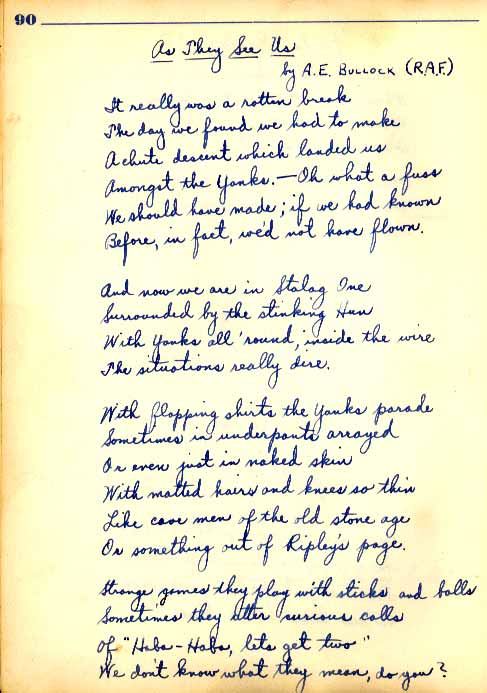 90
As They See Us
by A.E. BULLOCK (R.A.F.)
It really was a rotten break
The day we found we had to make
A chute descent which landed us
Amongst the Yanks. — Oh what a fuss
We should have made; if we had known
Before, in fact, we'd not have flown.
And now we are in Stalag One
Surrounded by the stinking Hun
With Yanks all 'round, inside the wire
The situations really dire.
With flopping shirts the Yanks parade
Sometimes in underpants arrayed
Or even just in naked skin
With matted hairs and knees so thin
Like cave men of the old stone age
Or something out of Ripley's page.
Strange games they play with sticks and balls
Sometimes they utter curious calls
Of "Haba-Haba, lets get two"
We don't know what they mean, do you?